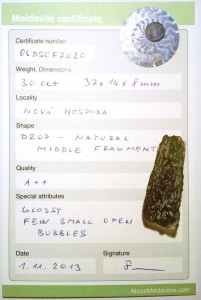 Moldavite certificate
Certificate number
06DSCF7020
Weight, Dimensions
30.0ct 37x14x8mm
Locality
NOVÁ HOSPODA
Shape
DROP - NATURAL
MIDDLE FRAGMENT
Quality
A++
Special attributes
GLOSSY
FEW SMALL OPEN
BUBBLES
Date
Signature
1.11.2013
AboutMoldavites.com